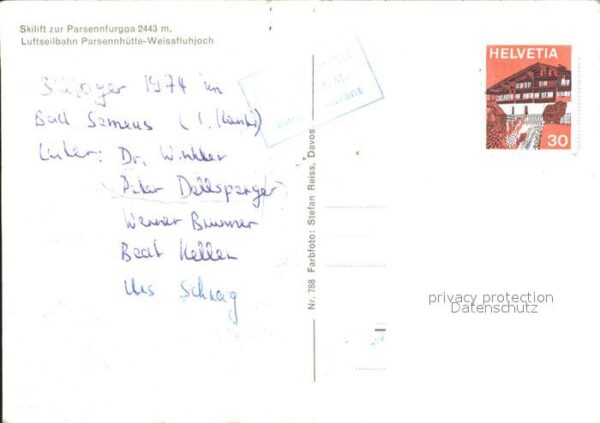 Skilift zur Parsennfurgga 2443 m,
Luftseilbahn Parsennhütte-Weissfluhjoch
1974 in
Bad
Leiter: Dr. Winkler
Peter
Werner Brunner
Beat Keller
Urs Schrag
Nr. 788 Farbfoto: Stefan Reiss, Davos
HELVETIA
30
privacy protection
Datenschutz